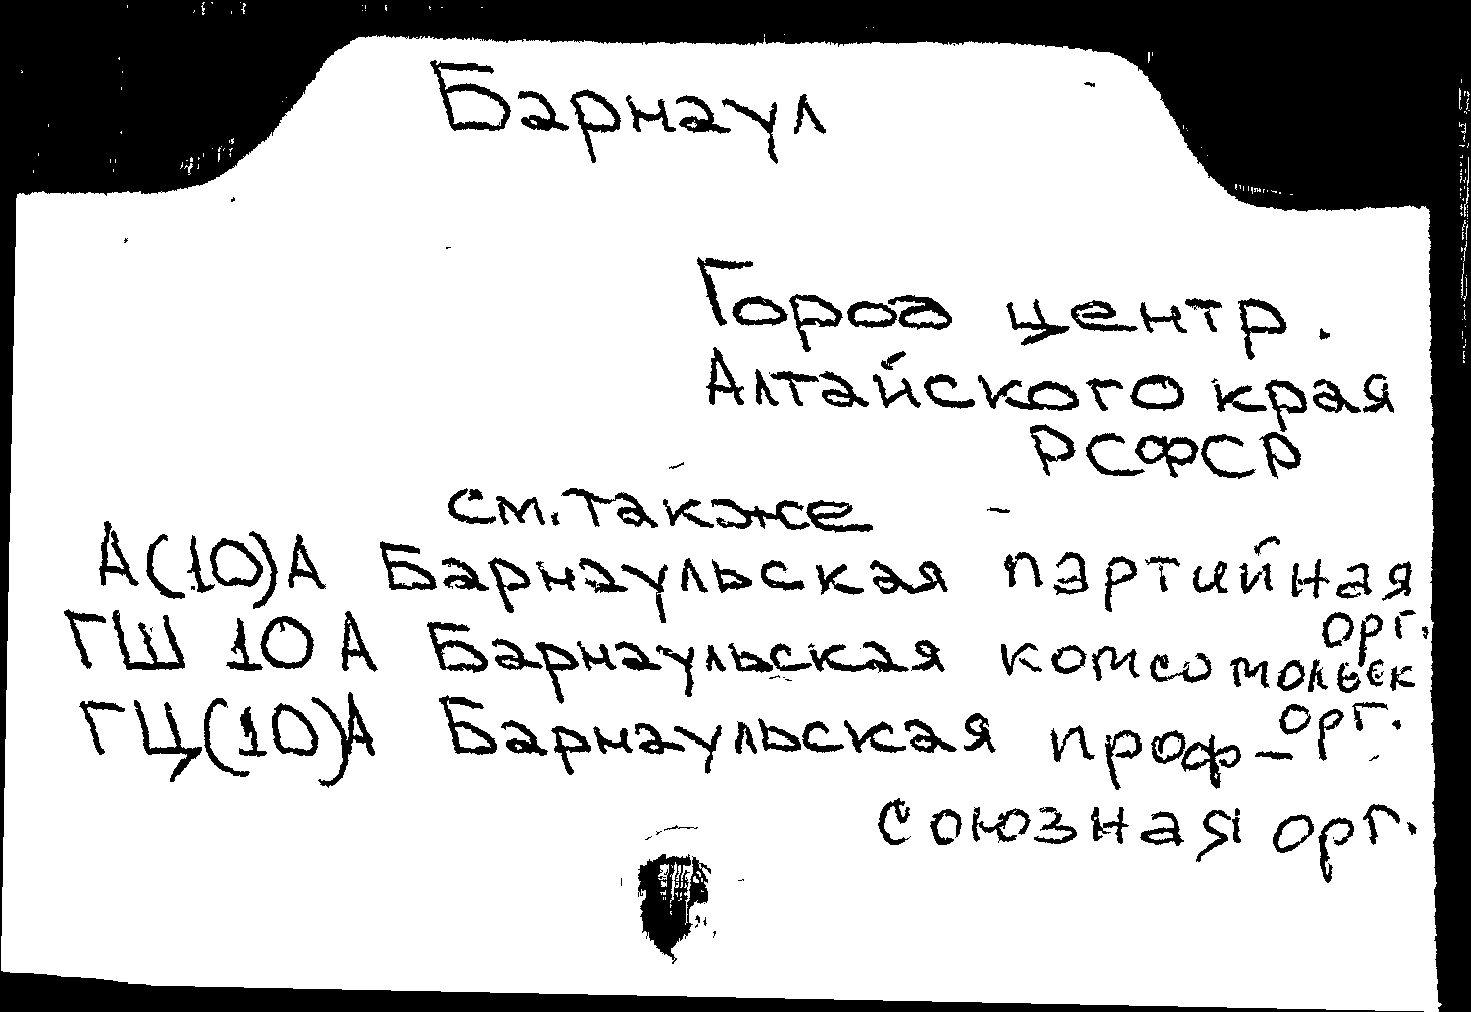 Барнаул
Город центр.
Алтайского края
РСФСР
см. также
А(10)А Барнаульская партийная
орг.
ГШ 10 А Барнаульская комсомольск
орг.
ГЦ(10)А Барнаульская проф-
союзная орг.